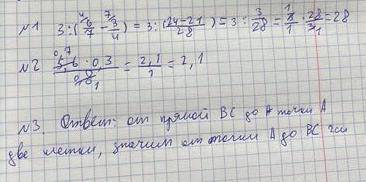 №1 3:(6/7-3/4)=3:(24-21/28)=3:3/28=3/1·28/3=28
№2 5,6·0,3/0,8=2,1/1=2,1
№3. Ответ: от прямой BC до точки A
две клетки, значит от точки A до BC 2см